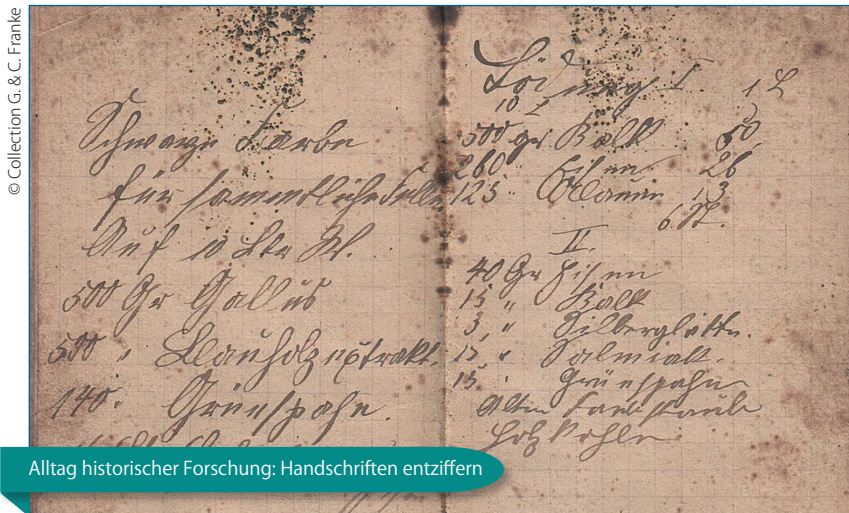 © Collection G. & C. Franke
Schwarze Farbe
für sammtliche Felle
Auf 10 Ltr W.
500 Gr Gallus
500 " Blauholzextrakt.
140 " Grünspahn.
Tödtung I 1 L
10 L
500 gr Kalk 50
260 " Eisen 26
125 " Alaun 13
6 St.
II.
40 Gr Eisen
15 " Kalk
3 " Silberglätte.
15 " Salmiak.
15 " Grünspahn
Holzkohle.
Alltag historischer Forschung: Handschriften entziffern